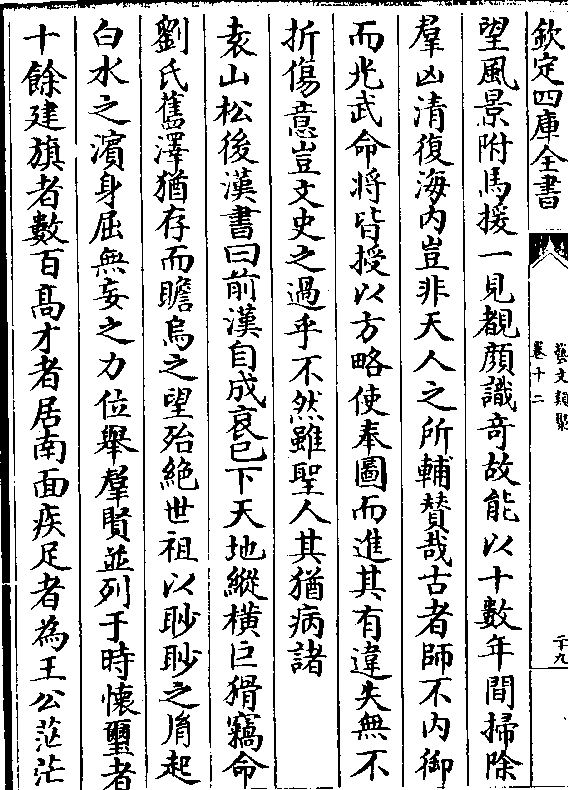 欽定四庫全書
藝文類聚
卷十二
十九
望風景附馬援一見覩顔識奇故能以十數年間掃除
羣凶清復海内豈非天人之所輔賛哉古者師不内御
而光武命将皆授以方略使奉圖而進其有違失無不
折傷意豈文史之過乎不然雖聖人其猶病諸
袁山松後漢書曰前漢自成哀已下天地縱橫巨猾竊命
劉氏舊澤猶存而瞻烏之望殆絶世祖以眇眇之胄起
白水之濵身屈無妄之力位舉羣賢並列于時懐璽者
十餘建旗者數百髙才者居南面疾足者為王公茫茫